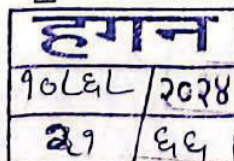 हगन
१०८६८/२०२४
६६